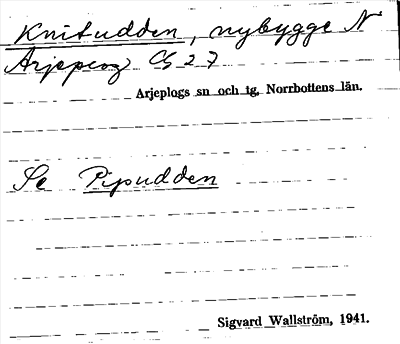 Knitudden, nybygge N
Arjeplog C 27
Arjeplogs sn och tg, Norrbottens län.
Se Pipudden
Sigvard Wallström, 1941.